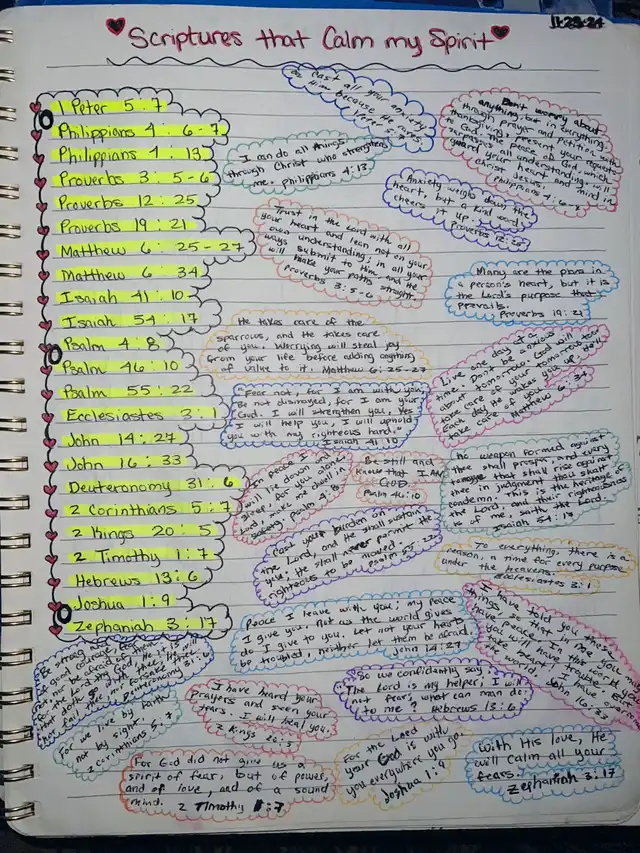 11-23-24
Scriptures that Calm my Spirit
1 Peter 5:7
Philippians 4:6-7
Philippians 4:13
Proverbs 3:5-6
Proverbs 12:25
Proverbs 19:21
Matthew 6:25-27
Matthew 6:34
Isaiah 41:10
Isaiah 54:17
Psalm 4:8
Psalm 46:10
Psalm 55:22
Ecclesiastes 3:1
John 14:27
John 16:33
Deuteronomy 31:6
2 Corinthians 5:7
2 Kings 20:5
2 Timothy 1:7
Hebrews 13:6
Joshua 1:9
Zephaniah 3:17
Cast all your anxiety
on Him because He cares
Don't worry about
anything, but in everything
through prayer and petition with
thanksgiving, present your requests
God. The peace of God, which
surpasses all understanding, will
guard your heart and mind in
Christ Jesus.
Philippians 4:6-7
I can do all things
through Christ who strengthens
me. Philippians 4:13
Anxiety weighs down the
heart, but a kind word
cheers it up.
Proverbs 12:25
Trust in the Lord with all
your heart and lean not on your
own understanding; in all your
ways submit to Him, and He
will make your paths straight.
Proverbs 3:5-6
Many are the plans in
a person's heart, but it is
the Lord's purpose that
prevails.
Proverbs 19:21
He takes care of the
sparrows, and He takes care
of you. Worrying will steal joy
from your life before adding anything
of value to it. Matthew 6:25-27
Live one day at a
time. Don't be anxious
about tomorrow. God will
take care of your tomorrow too.
Each day He wakes you up, He'll
take care of you.
Matthew 6:34
"Fear not, for I am with you;
Be not dismayed, for I am your
God. I will strengthen you, Yes
I will help you, I will uphold
you with my righteous hand."
Isaiah 41:10
In peace I
will lie down and
sleep, for you alone,
Lord, make me dwell in
safety. Psalm 4:8
Be still and
know that I Am
GOD
Psalm 46:10
No weapon formed against
thee shall prosper; and every
tongue that shall rise against
thee in judgment thou shalt
condemn. This is the heritage of
the Lord, and their righteousness
is of me, saith the Lord.
Isaiah 54:17
Cast your burden on
the Lord, and He shall sustain
you; He shall never permit the
righteous to be moved.
Psalm 55:22
To everything, there is a
season, a time for every purpose
under the heavens.
Ecclesiastes 3:1
Peace I leave with you; my peace
I give you. Not as the world gives
do I give to you. Let not your hearts
be troubled, neither let them be afraid.
John 14:27
I have told you these
things so that in me, you
have peace. In this world
you will have trouble. But
the world.
John 16:33
Be strong and
of good courage, fear not,
Deuteronomy 31:6
For we live by faith
not by sight.
2 Corinthians 5:7
I have heard your
Prayers and seen your
tears. I will heal you.
2 Kings 20:5
So we confidantly say
The Lord is my helper; I will
not fear; what can man do
to me? Hebrews 13:6
For God did not give us a
spirit of fear, but of power,
and of love, and of a sound
mind. 2 Timothy 1:7
For the Lord
your God is with
you everywhere you go.
Joshua 1:9
With His love, He
will calm all your
fears.
Zephaniah 3:17